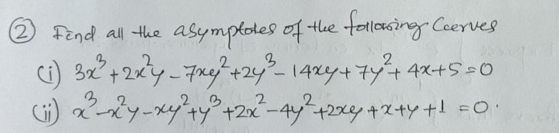 ② Find all the asymptotes of the following Coerves
(i) 3x³ + 2x²y - 7xy² + 2y³ - 14xy + 7y² + 4x + 5 = 0
(ii) x³ - x²y - xy² + y³ + 2x² - 4y² + 2xy + x + y + 1 = 0.